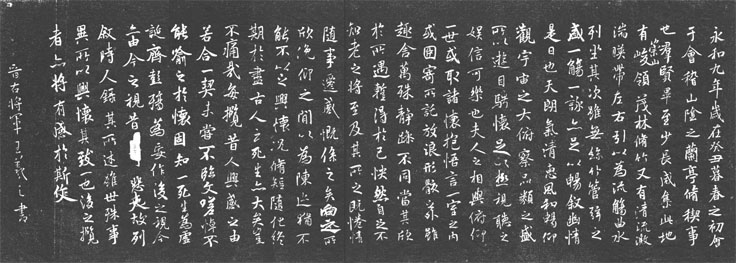 永和九年歲在癸丑暮春之初會
于會稽山陰之蘭亭脩稧事
也羣賢畢至少長咸集此地
有崇山峻領茂林脩竹又有清流激
湍暎帶左右引以為流觴曲水
列坐其次雖無絲竹管弦之
盛一觴一詠亦足以暢敘幽情
是日也天朗氣清惠風和暢仰
觀宇宙之大俯察品類之盛
所以遊目騁懷足以極視聽之
娛信可樂也夫人之相與俯仰
一世或取諸懷抱悟言一室之內
或因寄所託放浪形骸之外雖
趣舍萬殊靜躁不同當其欣
於所遇蹔得於己怏然自足不
知老之將至及其所之既惓情
隨事遷感慨係之矣向之所
欣俛仰之間以為陳迹猶不
能不以之興懷況脩短隨化終
期於盡古人云死生亦大矣豈
不痛哉每攬昔人興感之由
若合一契未嘗不臨文嗟悼不
能喻之於懷固知一死生為虛
誕齊彭殤為妄作後之視今
亦由今之視昔悲夫故列
敘時人錄其所述雖世殊事
異所以興懷其致一也後之攬
者亦將有感於斯文
晉右將軍王羲之書